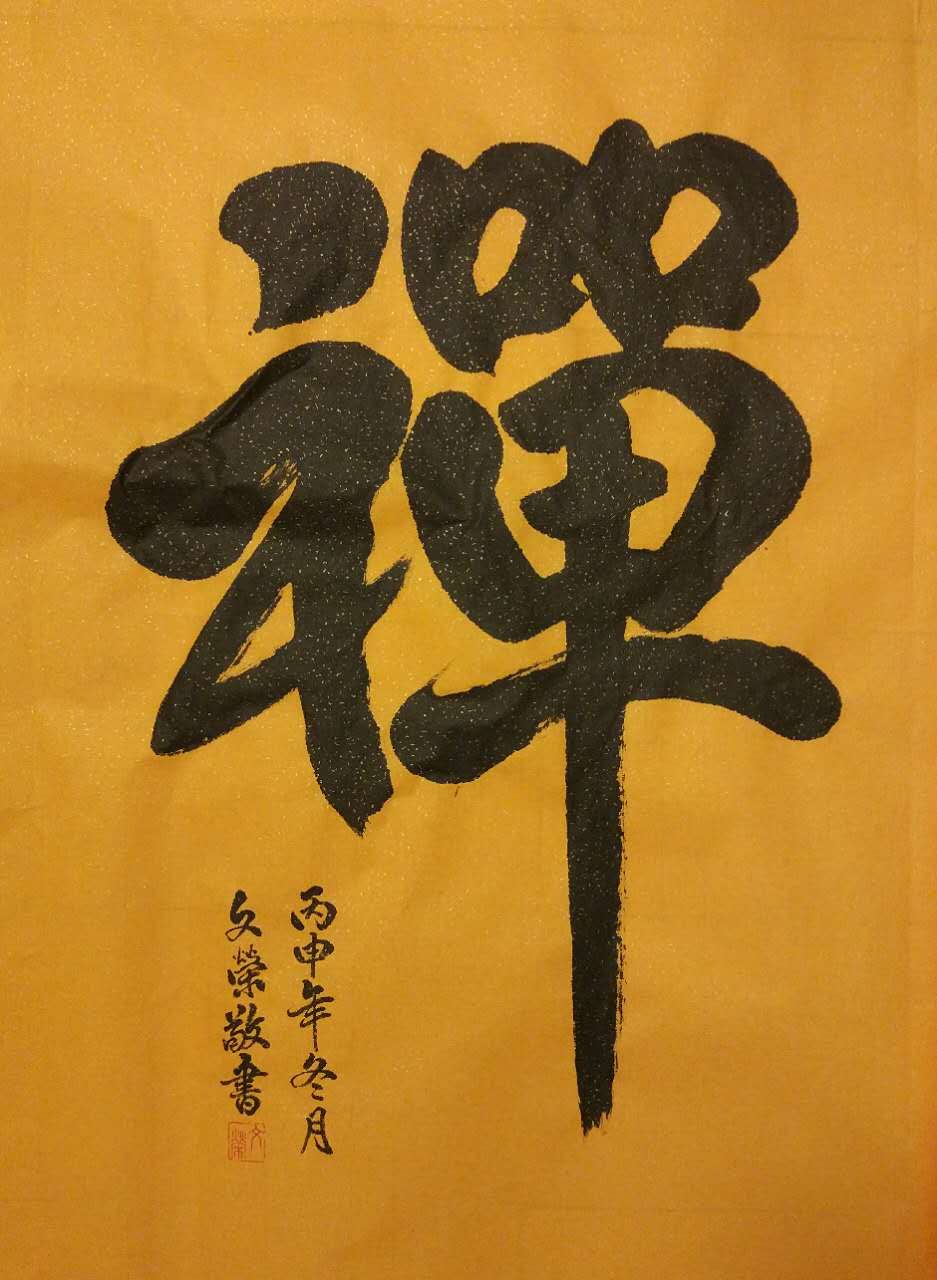 禪
丙申年冬月
文榮敬書
文榮